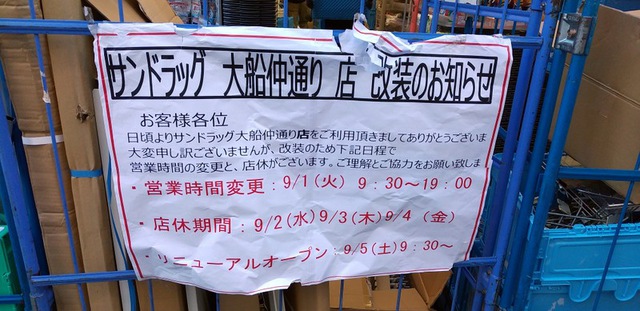 サンドラッグ 大船仲通り 店 改装のお知らせ
お客様各位
日頃よりサンドラッグ大船仲通り店をご利用頂きましてありがとうございま
大変申し訳ございませんが、改装のため下記日程で
営業時間の変更と、店休がございます。ご理解とご協力をお願い致しま
・営業時間変更：9/1(火) 9：30～19：00
・店休期間：9/2(水)9/3(木)9/4 (金)
・リニューアルオープン：9/5(土)9：30～